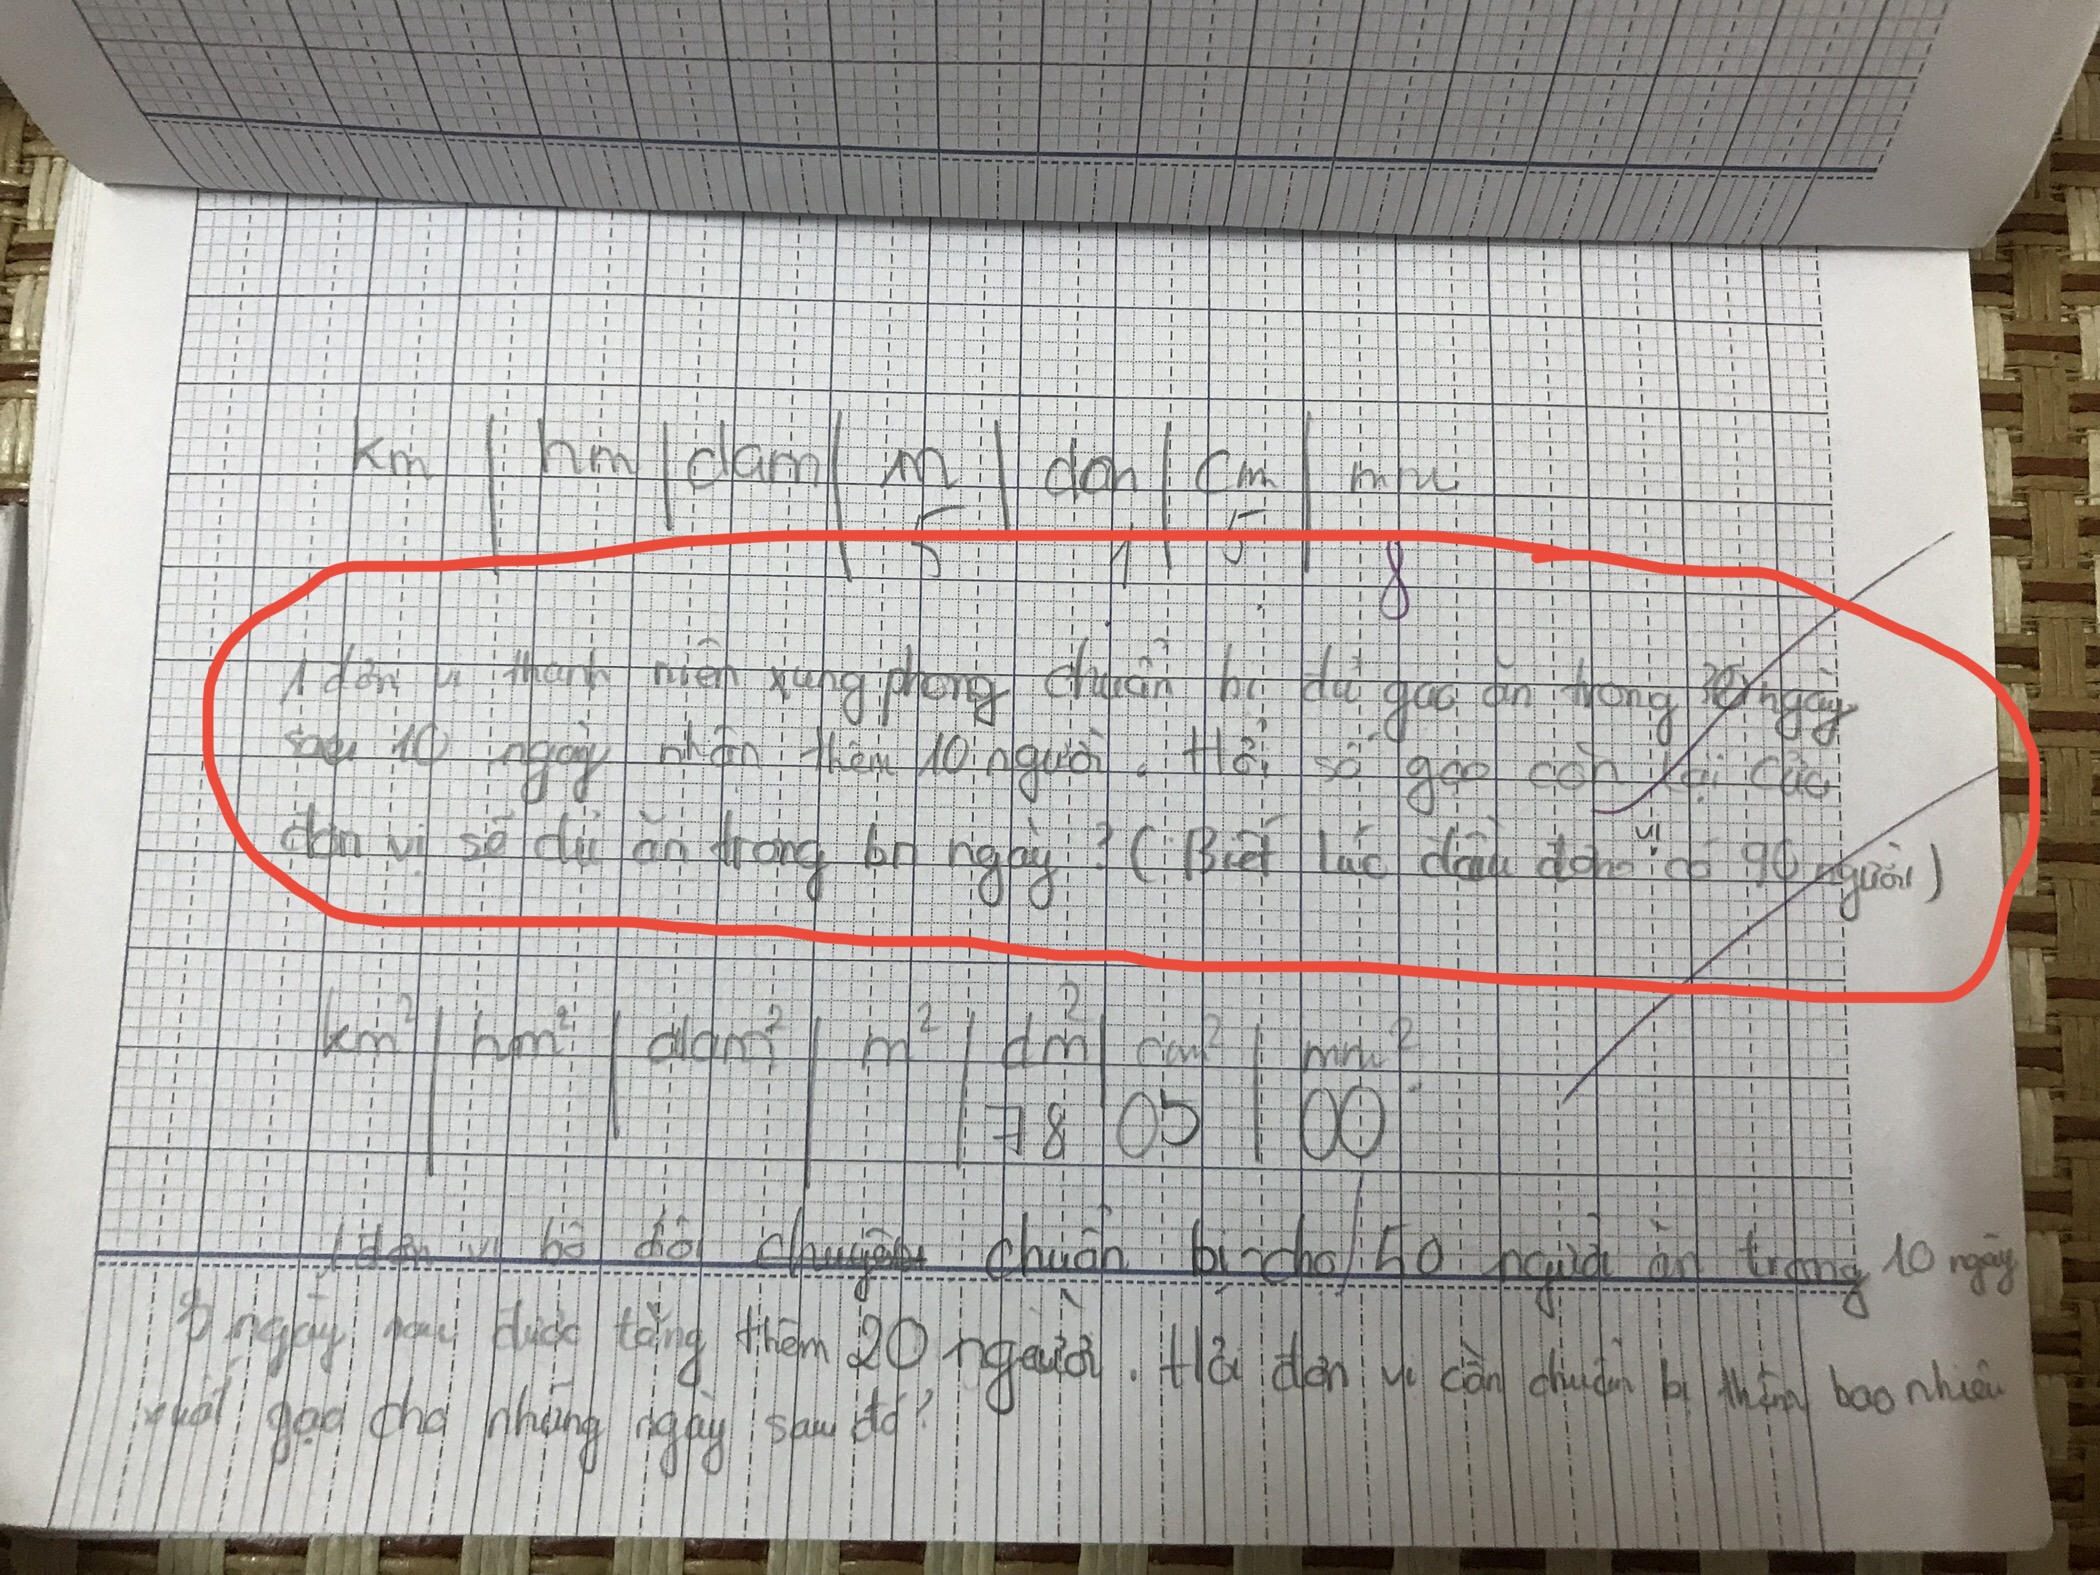 km | hm | dam | m | dm | cm | mm
5 1 5 8
1 đơn vị thanh niên xung phong chuẩn bị đủ gạo ăn trong 30 ngày
sau 10 ngày nhận thêm 10 người. Hỏi số gạo còn lại của
đơn vị sẽ đủ ăn trong bn ngày? (Biết lúc đầu đơn vị có 90 người)
km² | hm² | dam² | m² | dm² | cm² | mm²
78 05 00
1 đơn vị bộ đội chuẩn bị cho 50 người ăn trong 10 ngày
3 ngày sau được tăng thêm 20 người. Hỏi đơn vị cần chuẩn bị thêm bao nhiêu
xuất gạo cho những ngày sau đó?